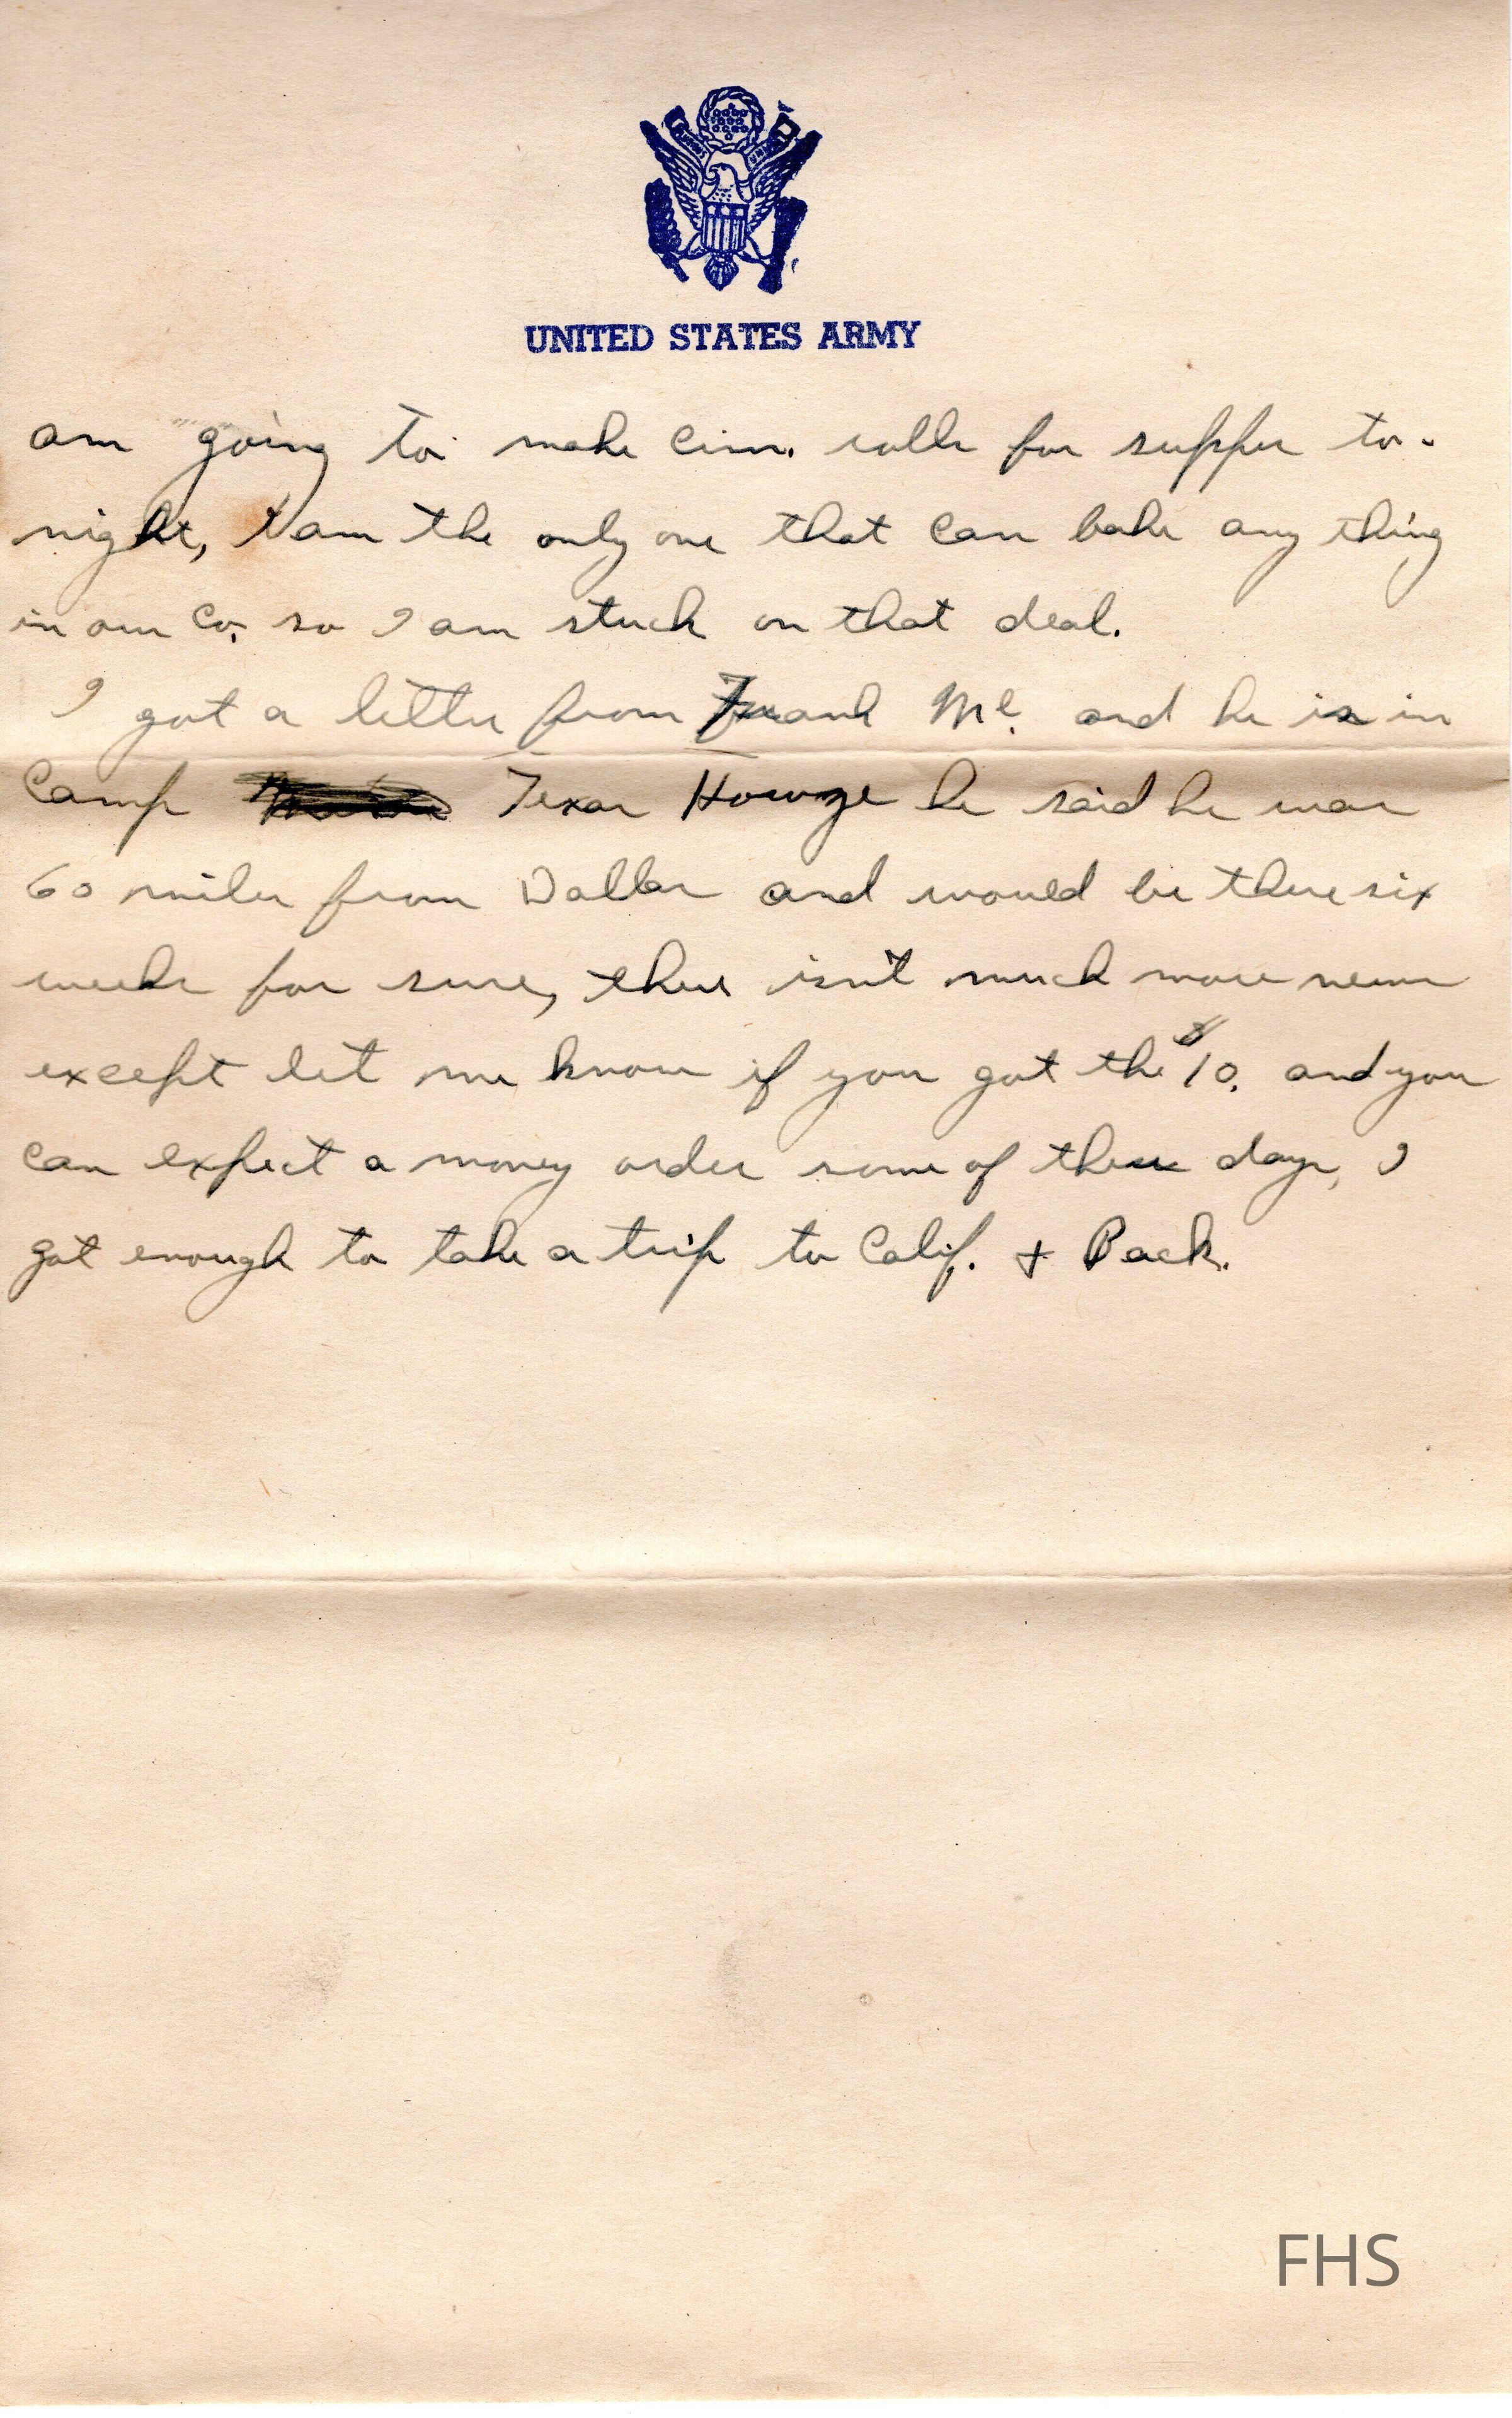 UNITED STATES ARMY
am going to make cinn. rolls for supper to-
night, I am the only one that can bake any thing
in our Co, so I am stuck on that deal.
I got a letter from Frank Mc. and he is in
Camp Texas Howze he said he was
60 miles from Dallas and would be there six
weeks for sure, there isn't much more news
except let me know if you got the $10. and you
can expect a money order some of these days, I
got enough to take a trip to Calif. + Back.
FHS